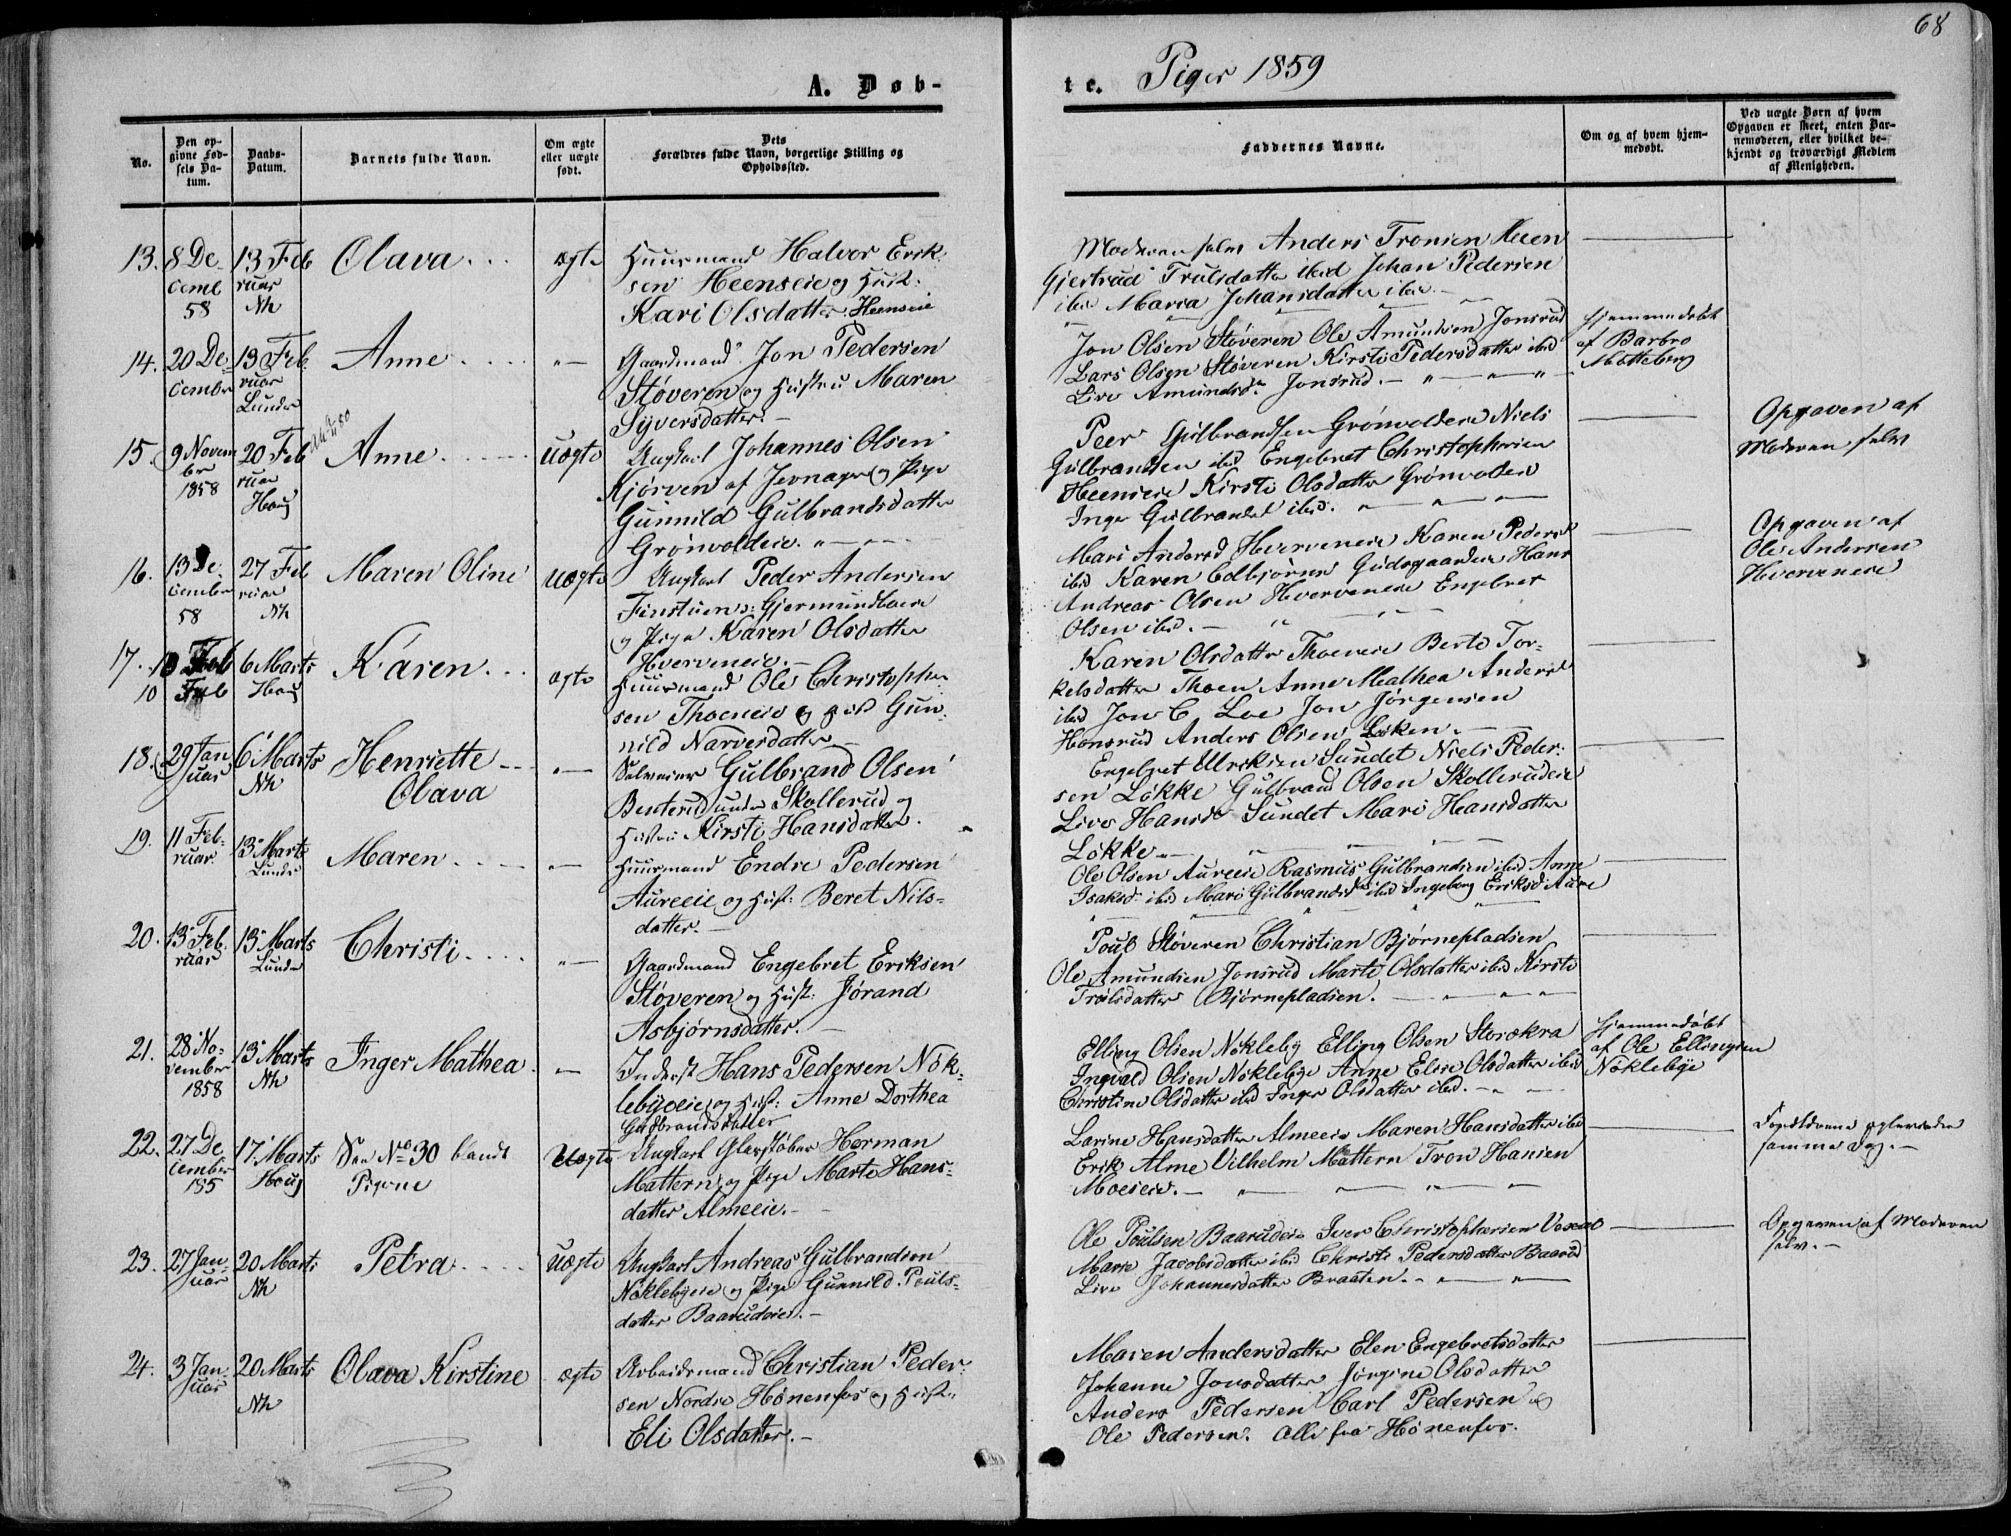 68
A. Døb-
te. Piger 1859
No.
Den op-
givne Fød-
sels Da-
tum.
Daabs-
Datum.
Barnets fulde Navn.
Om ægte
eller uægte
født.
Dets
Forældres fulde Navn, borgerlige Stilling og
Opholdssted.
Faddernes Navne.
Om og af hvem hjem-
medøbt.
Ved uægte Børn af hvem
Opgaven er skeet, enten Bar-
nemoderen, eller hvilket be-
kjendt og troværdigt Medlem
af Menigheden.
13. 8 De- 13 Feb Olava ægte Huusmand Halvor Erik-
cemb ruar sen Heenseie og Hust.
58 Nh Kari Olsdatter Heenseie
Moderen selv Anders Tronsen Heen
Gjertrud Trulsdatter ibid Johan Pedersen
ibid Maria Johansdatter ibid
14. 20 De- 13 Feb. Anne Gaardmand Jon Pedersen
cembr ruar Støveren og Hustru Maren
Lunder Syversdatter.
Jon Olsen Støveren Ole Amundsen Jonsrud
Lars Olsen Støveren Kirsti Pedersdatter ibid
Live Amundsd. Jonsrud.
Hjemmedøbt
af Barbro
Motteberg
15. 9 Novem 20 Feb Anne uægte Ungkarl Johannes Olsen
ber ruar Kjørven af Jevnager og Pige
1858 Houg Gunnild Gulbrandsdatter
Grønvoldeie.
Peer Gulbrandsen Grønvoldeie Niels
Gulbrandsen ibid Engebret Christophersen
Heenseie Kirsti Olsdatter Grønvolden
Inge Gulbrandsd ibid.
Opgaven af
Moderen selv
16. 13 De- 27 Feb Maren Oline uægte Ungkarl Peder Andersen
cember ruar
58 Nh og Pige Karen Olsdatter
Hverveneie.
Mari Andersd Hverveneie Karen Pedersd
ibid Karen Hans
Andreas Olsen Hverveneie Engebret
Olsen ibid.
Opgaven af
Ole Andersen
Hverveneie
17. 10 Feb 6 Marts Karen ægte Huusmand Ole Christopher-
10 Feb Houg sen Thoeneie og Hust Gun-
nild Narvesdatter
Karen Olsdatter Thoeneie Berte Tor-
kelsdatter Thoen Anne Mathea Andersd
ibid Jon C. Loe Jon Jørgensen
Honsrud Anders Olsen Løken.
18. 29 Jan 6 Marts Henriette Gulbrand Olsen
uar Nh Olava Benterud under Skollerud og
Hustru Kirsti Hansdatter.
Engebret Ulriksen Sundet Niels Peder-
sen Løkke Gulbrand Olsen Skollerudeie
Live Hansd Sundet Mari Hansdatter
Løkke
19. 11 Feb- 13 Marts Maren Huusmand Endre Pedersen
ruar Lunder Aureeie og Hust: Beret Nils-
datter.
Ole Olsen Aureeie Rasmus Gulbrandsen ibid Anne
Isaksd ibid Mari Gulbrandsd ibid Ingeborg Eriksd Aure
20. 13 Feb 13 Marts Christi Gaardmand Engebret Eriksen
ruar Lunder Støveren og Hust: Jørand
Asbjørnsdatter.
Poul Støveren Christian Bjørnepladsen
Ole Amundsen Jonsrud Marte Olsdatter ibid Kirsti
Trulsdatter Bjørnepladsen.
21. 28 No- 13 Marts Inger Mathea Inderst Hans Pedersen Nøk-
vember Nh lebyeie og Hust: Anne Dorthea
1858 Guldbrandsdatter
Elling Olsen Nøkleby Elling Olsen Storækra
Ingvald Olsen Nøklebye Anne Elise Olsdatter ibid
Christine Olsdatter ibid Inger Olsdatter ibid.
Hjemmedøbt
af Ole Ellingsen
Nøklebye
22. 27 De- 17 Marts See No 30 blandt uægte Ungkarl Glasstøber Herman
cember Houg Pigene Mattern og Pige Marte Hans-
185 datter Almeeie.
Larine Hansdatter Almeeie Maren Hansdatter ibid
Erik Alme Vilhelm Mattern Tron Hansen
Moeseie.
Forældrene
samme Dag.
23. 27 Jan- 20 Marts Petra uægte Ungkarl Andreas Gulbrandsen
uar Nh Nøklebyeie og Pige Gunnild Pouls-
datter Baarudeie.
Ole Poulsen Baarudeie Iver Christophersen
Marie Jacobsdatter ibid Christi Pedersdatter Baarud
Live Johannesdatter Braaten.
Opgaven af Moderen
selv.
24. 3 Jan- 20 Marts Olava Kirstine ægte Arbeidsmand Christian Peder-
uar Nh sen Nordre Hønenfos og Hust:
Eli Olsdatter.
Maren Andersdatter Elen Engebretsdatter
Johanne Jonsdatter Jørgine Olsdatter
Anders Pedersen Carl Pedersen og
Ole Pedersen. Alle fra Hønenfos.